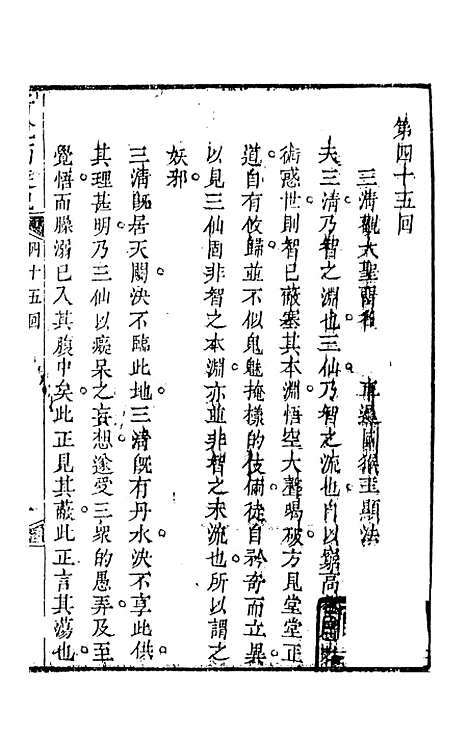 第四十五回
三清觀大聖留名 車遲國猴王顯法
夫三清乃智之淵也三仙乃智之流也自以為高
術惑世則智已蔽塞其本淵悟空大聲喝破方見堂堂正
道自有攸歸並不似鬼魅掩樣的伎倆徒自矜奇而立異
以見三仙固非智之本淵亦並非智之末流也所以謂之
妖邪
三清旣居天闕決不臨此地三清旣有丹水決不享此供
其理甚明乃三仙以癡呆之妄想遂受三衆的愚弄及至
覺悟而臊溺已入其腹中矣此正見其蔽此正言其蕩也
西遊記 四十五回 一